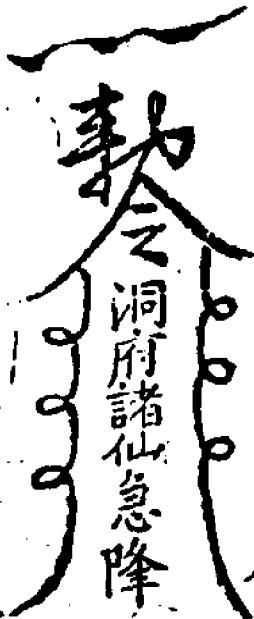 勅令
洞府諸仙急降